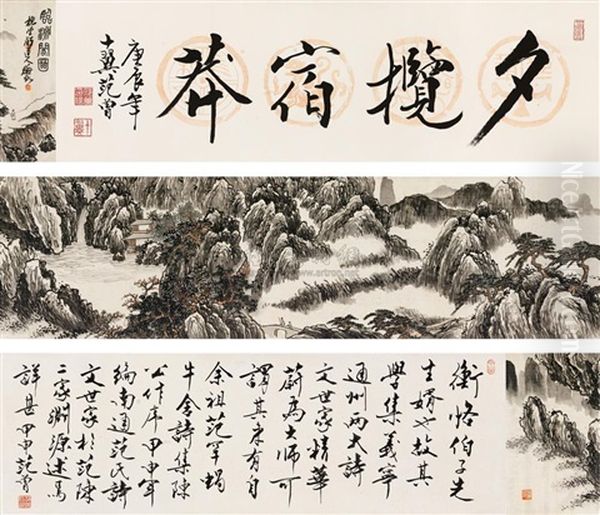 夕攬宿莽
庚辰年
十翼范曾
www.artron.net
衡恪伯子先
生婿也故其
學集義寧
通州兩大詩
文世家精華
蔚為大師可
謂其來有自
余祖范罕蝸
牛舍詩集陳
公作序甲申年
編南通范氏詩
文世家於范陳
二家淵源述焉
詳甚甲申范曾